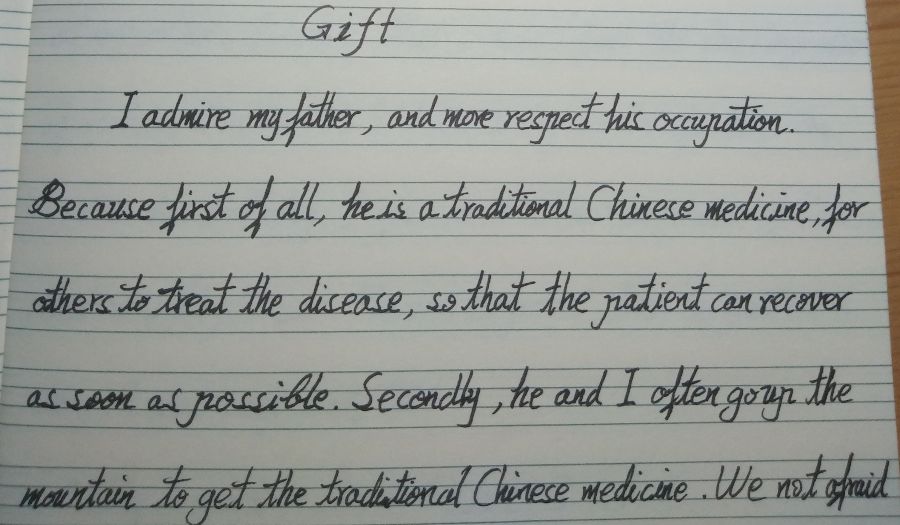 Gift
I admire my father, and more respect his occupation.
Because first of all, he is a traditional Chinese medicine, for
others to treat the disease, so that the patient can recover
as soon as possible. Secondly, he and I often go up the
mountain to get the traditional Chinese medicine. We not afraid